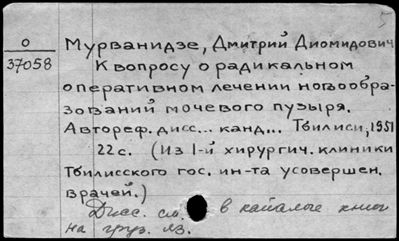 О
37058
Мурванидзе, Дмитрий Диомидович
К вопросу о радикальном
оперативном лечении новообра-
зований мочевого пузыря.
Автореф. дисс... канд... Тбилиси, 1951
22 с. (Из I-й хирургич. клиники
Тбилисского гос. ин-та усовершен.
врачей.)
Дисс. см. в каталоге книг
на груз. яз.